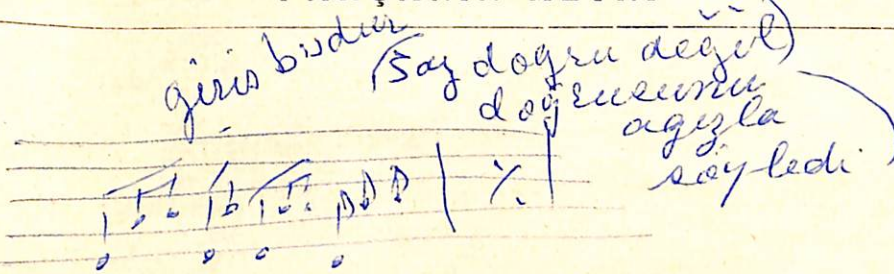 giris
(Saz dogru değil)
doğrucunu
agızla
söyledi